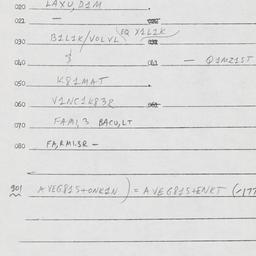 020 LAXU, D1M
021 —
030 B1L1K/VOLVL EQ Y1L1K
040 041 — Q1MZ1ST
050 K81MAT
060 V1NC1K83R 061
070 FAMI, 3 BACU, LT
080 FA, RM1.3R —
901 A VEG815+ONK1N ) = A VEG815+ENKT